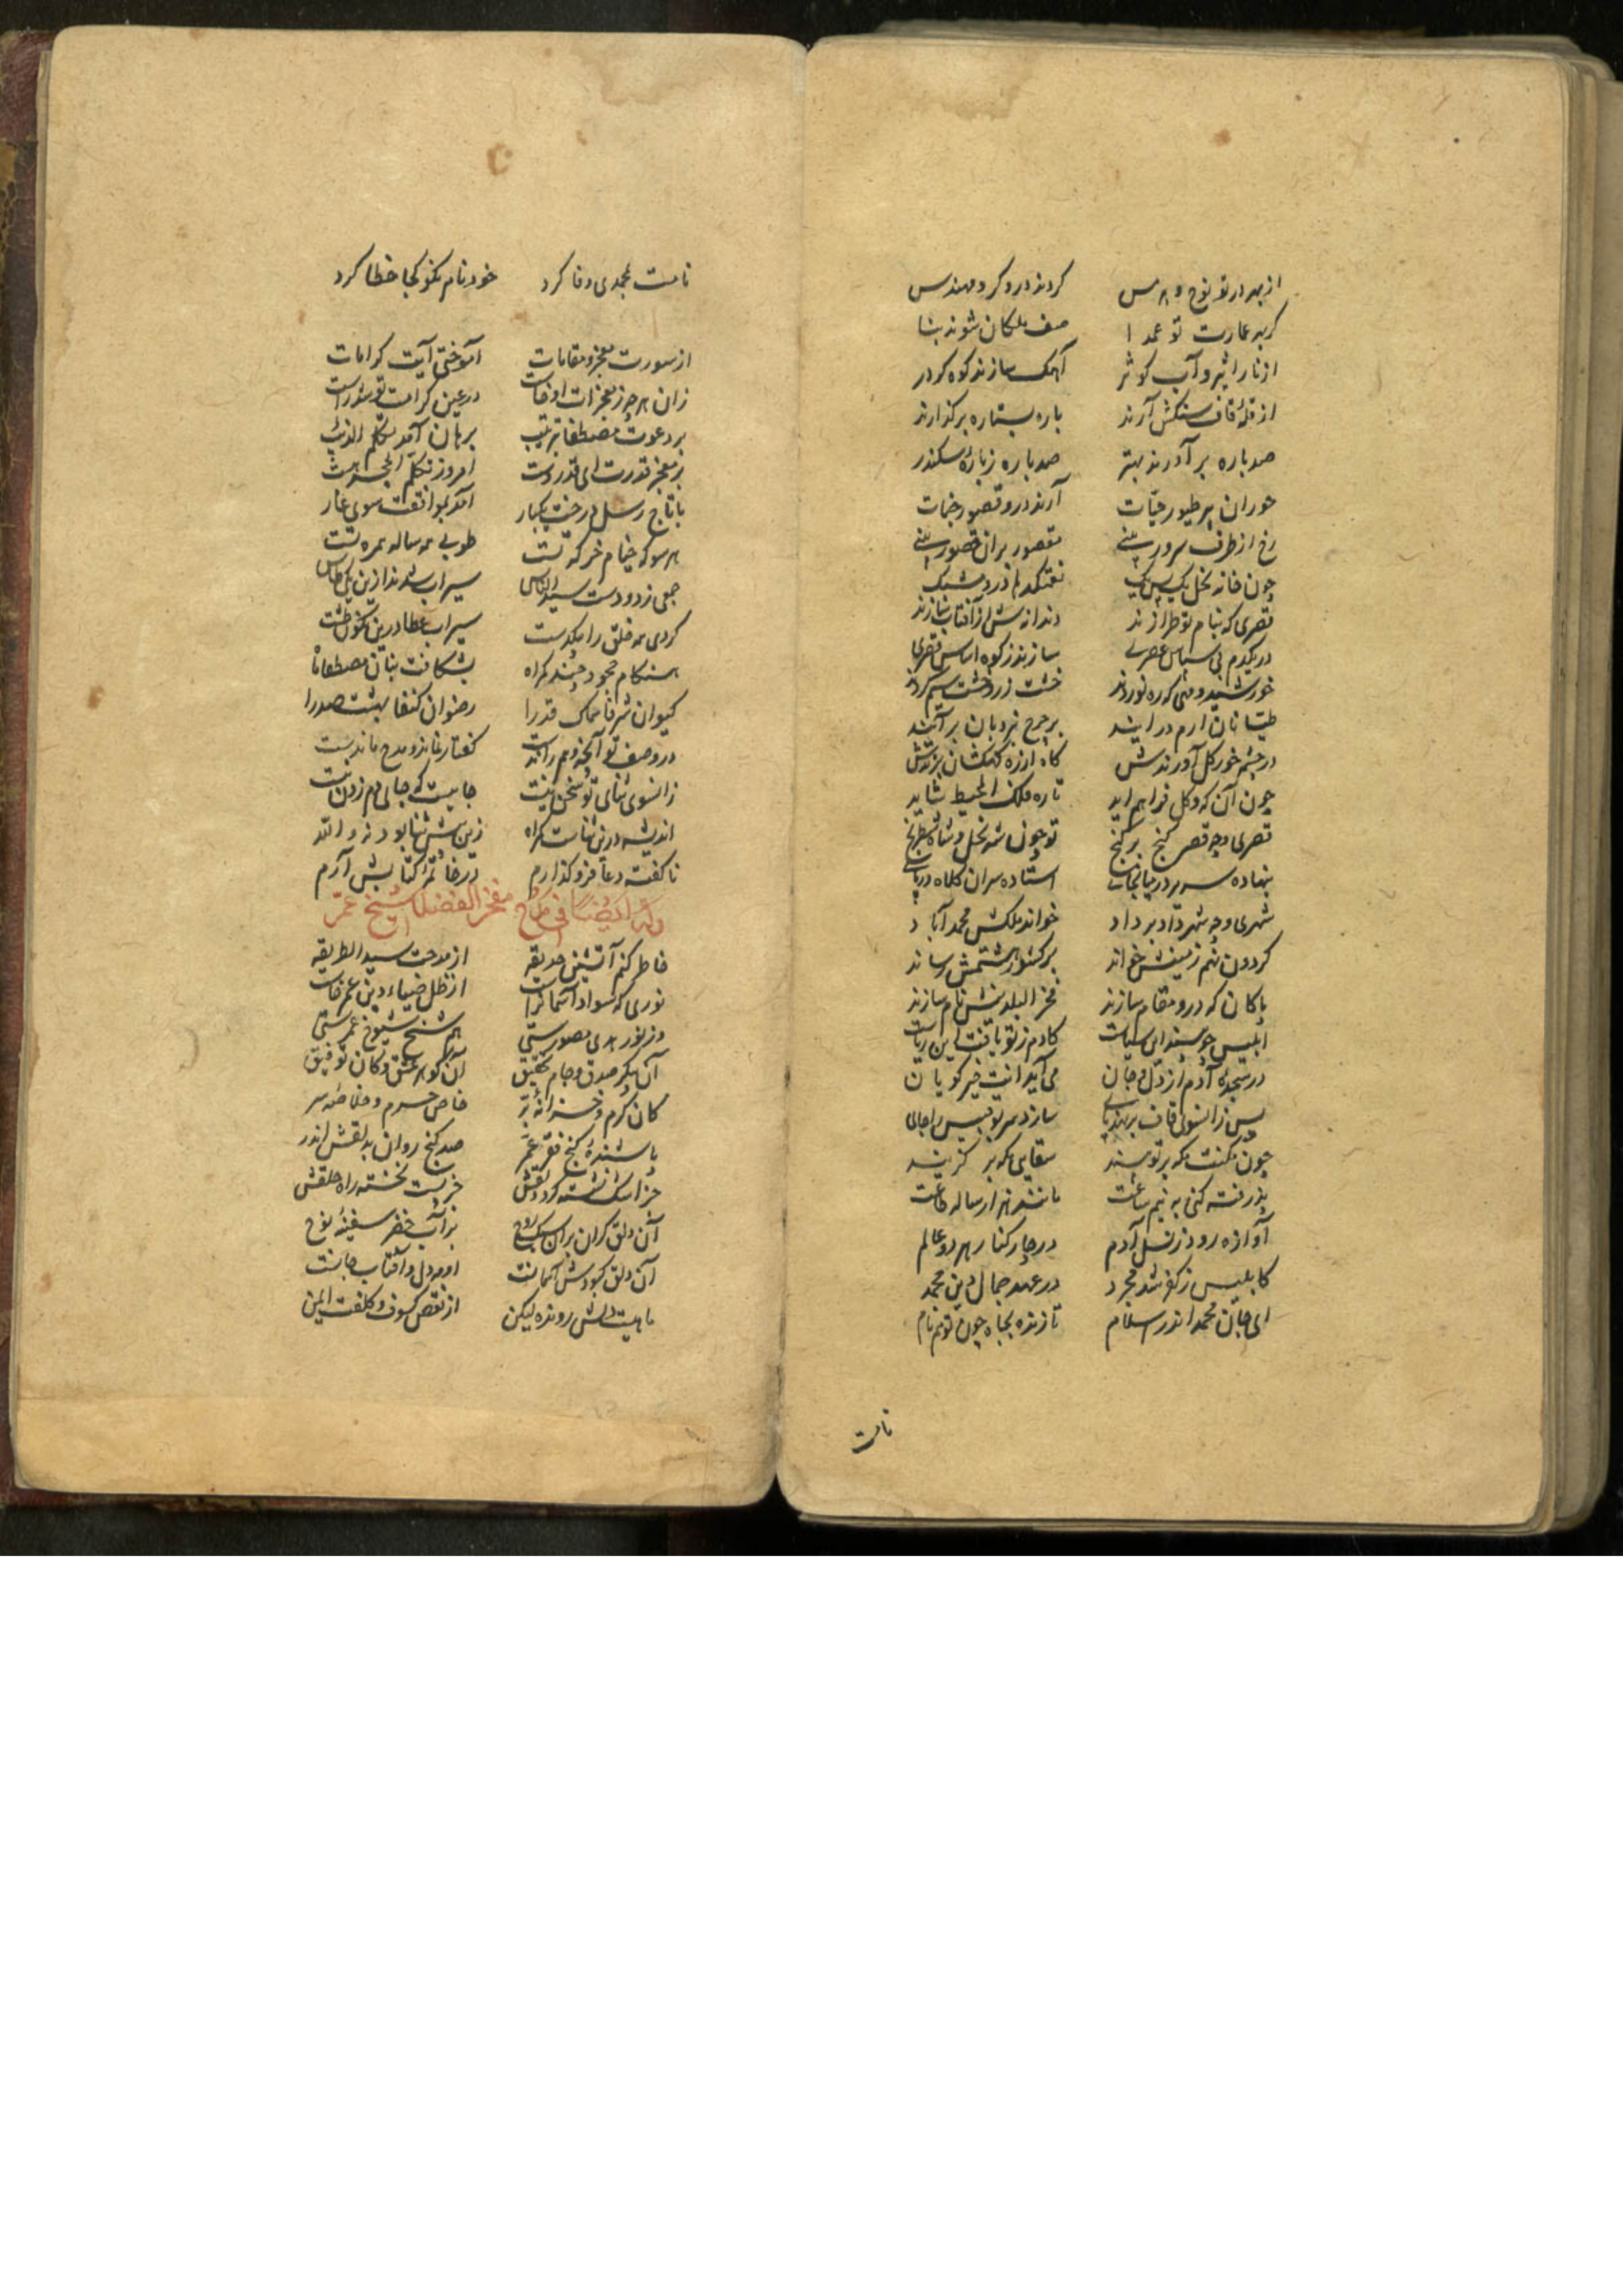 از بهر در تو نوح و هرمس کردند درودگر و مهندس
گر بهر عمارت تو عمدا صف ملکان شوند بنا
از نار اثیر و آب کوثر آهک سازند کوه کردر
از قلهٔ قاف سنگش آرند باره بستاره برگذارند
صد باره بر آورند بهتر صد باره ز بارهٔ سکندر
حوران پر طیور جنات آرند درو قصور جنات
رخ از طرف سرور بینی مقصور بران قصور بینی
چون خانه نحل یک بیک
قصری که بنام تو طرازند دندانه سش از آفتاب سازند
در یکدم بی سپاس عصری سازند ز کوه اساس قصری
خورشید و مهی که ره نوردند خشت زر و خشت سیم کردند
طیانان ارم در آیند بر چرخ نردبان بر آیند
در چشمه خور گل آورندش کاه از ره کهکشان برندش
چون آن که و گل فراهم اید تاره فلک المحیط شاید
قصری و چه قصر گنج بر گنج تو چون شه نحل و شاه شطرنج
بنهاده سریر در میانجای استاده سران کلاه در پای
شهری و چه شهر داد بر داد خواند ملکش محمد آباد
گردون نهم زمینش خواند بر کشور هشتمش رساند
پاکان که درو مقام سازند فخر البلدنش نام سازند
ابلیس چو بیند این سیاست کادم ز تو یافت این ریاست
در سجدهٔ آدم از دل و جان می آید انت خیر گویان
پس زانسوی قاف بر نهد پای سازد سر بوقبیس را جای
چون مکنت مکه بر تو بیند سقایی مکه بر گزیند
پذرفته کنی به نیم ساعت مانند هزار ساله طاعت
آوازه رود ز نسل آدم در چار کنار هر دو عالم
کابلیس ز کفر شد مجرد در عهد جمال دین محمد
ای جان محمد اندر اسلام تازنده بجاه چون تو هم نام
نامت
نامت بمحمدی وفا کرد خود نام نکو کجا خطا کرد
از سورت معجز و مقامات آموختی آیت کرامات
زان هر چه ز معجزات او خاست در عین کرامت تو شد راست
بر دعوت مصطفا بترتیب برهان آمد تکلم الذیب
بر معجز قدرت ای قدر دست امروز تکلم الحجر هست
با تاج رسل درخت یکبار آمد بموافقت سوی غار
هر سو که خیام خرگه تست طوبی همه ساله همره تست
جمعی ز دو دست سید الناس سیراب شدند ازین یکی طاس
کردی همه خلق را بیکدست سیراب عطا درین نگون طشت
هنگام محمود چند گمراه بشکافت بنان مصطفا ماه
کیوان شرفا سماک قدرا رضوان کنفا بهشت صدرا
در وصف تو آنچه وهم راندست گفتار نماند و مدح ماندست
زانسوی ثنای تو سخن نیست جاییست که جای دم زدن نیست
اندیشه درین ثناست گمراه زین بیش ثنا بود نه والله
ناگفته دعا فرو گذارم در خاتمهٔ کتابش آرم
وله ایضا فی مدح مفخر الفضلا شیخ عمر
خاطر کنم آتشین حدیقه از مدحت سید الطریقه
نوری که سواد آسمان راست از ظل ضیاء دین عمر خاست
وز نور هدی مصورستی هم شیخ شیوخ عمرستی
آن بکر صدق و جام تحقیق آن گوهر عشق و کان توفیق
کان کرم و خزانهٔ بر خاص حرم و خلاصه سر
باشندهٔ کنج فقر عمر صد گنج روان بدلقش اندر
جز اشک نشسته گرد دلقش جز بست نخسته راه حلقش
آن دلق گران بران سبک روح بر آب خضر سفینهٔ نوح
آن دلق کبودش آسمانت او مه دل و آفتاب جانست
ماهیت دلش رونده لیکن از نقص کسوف و کلفت ایمن